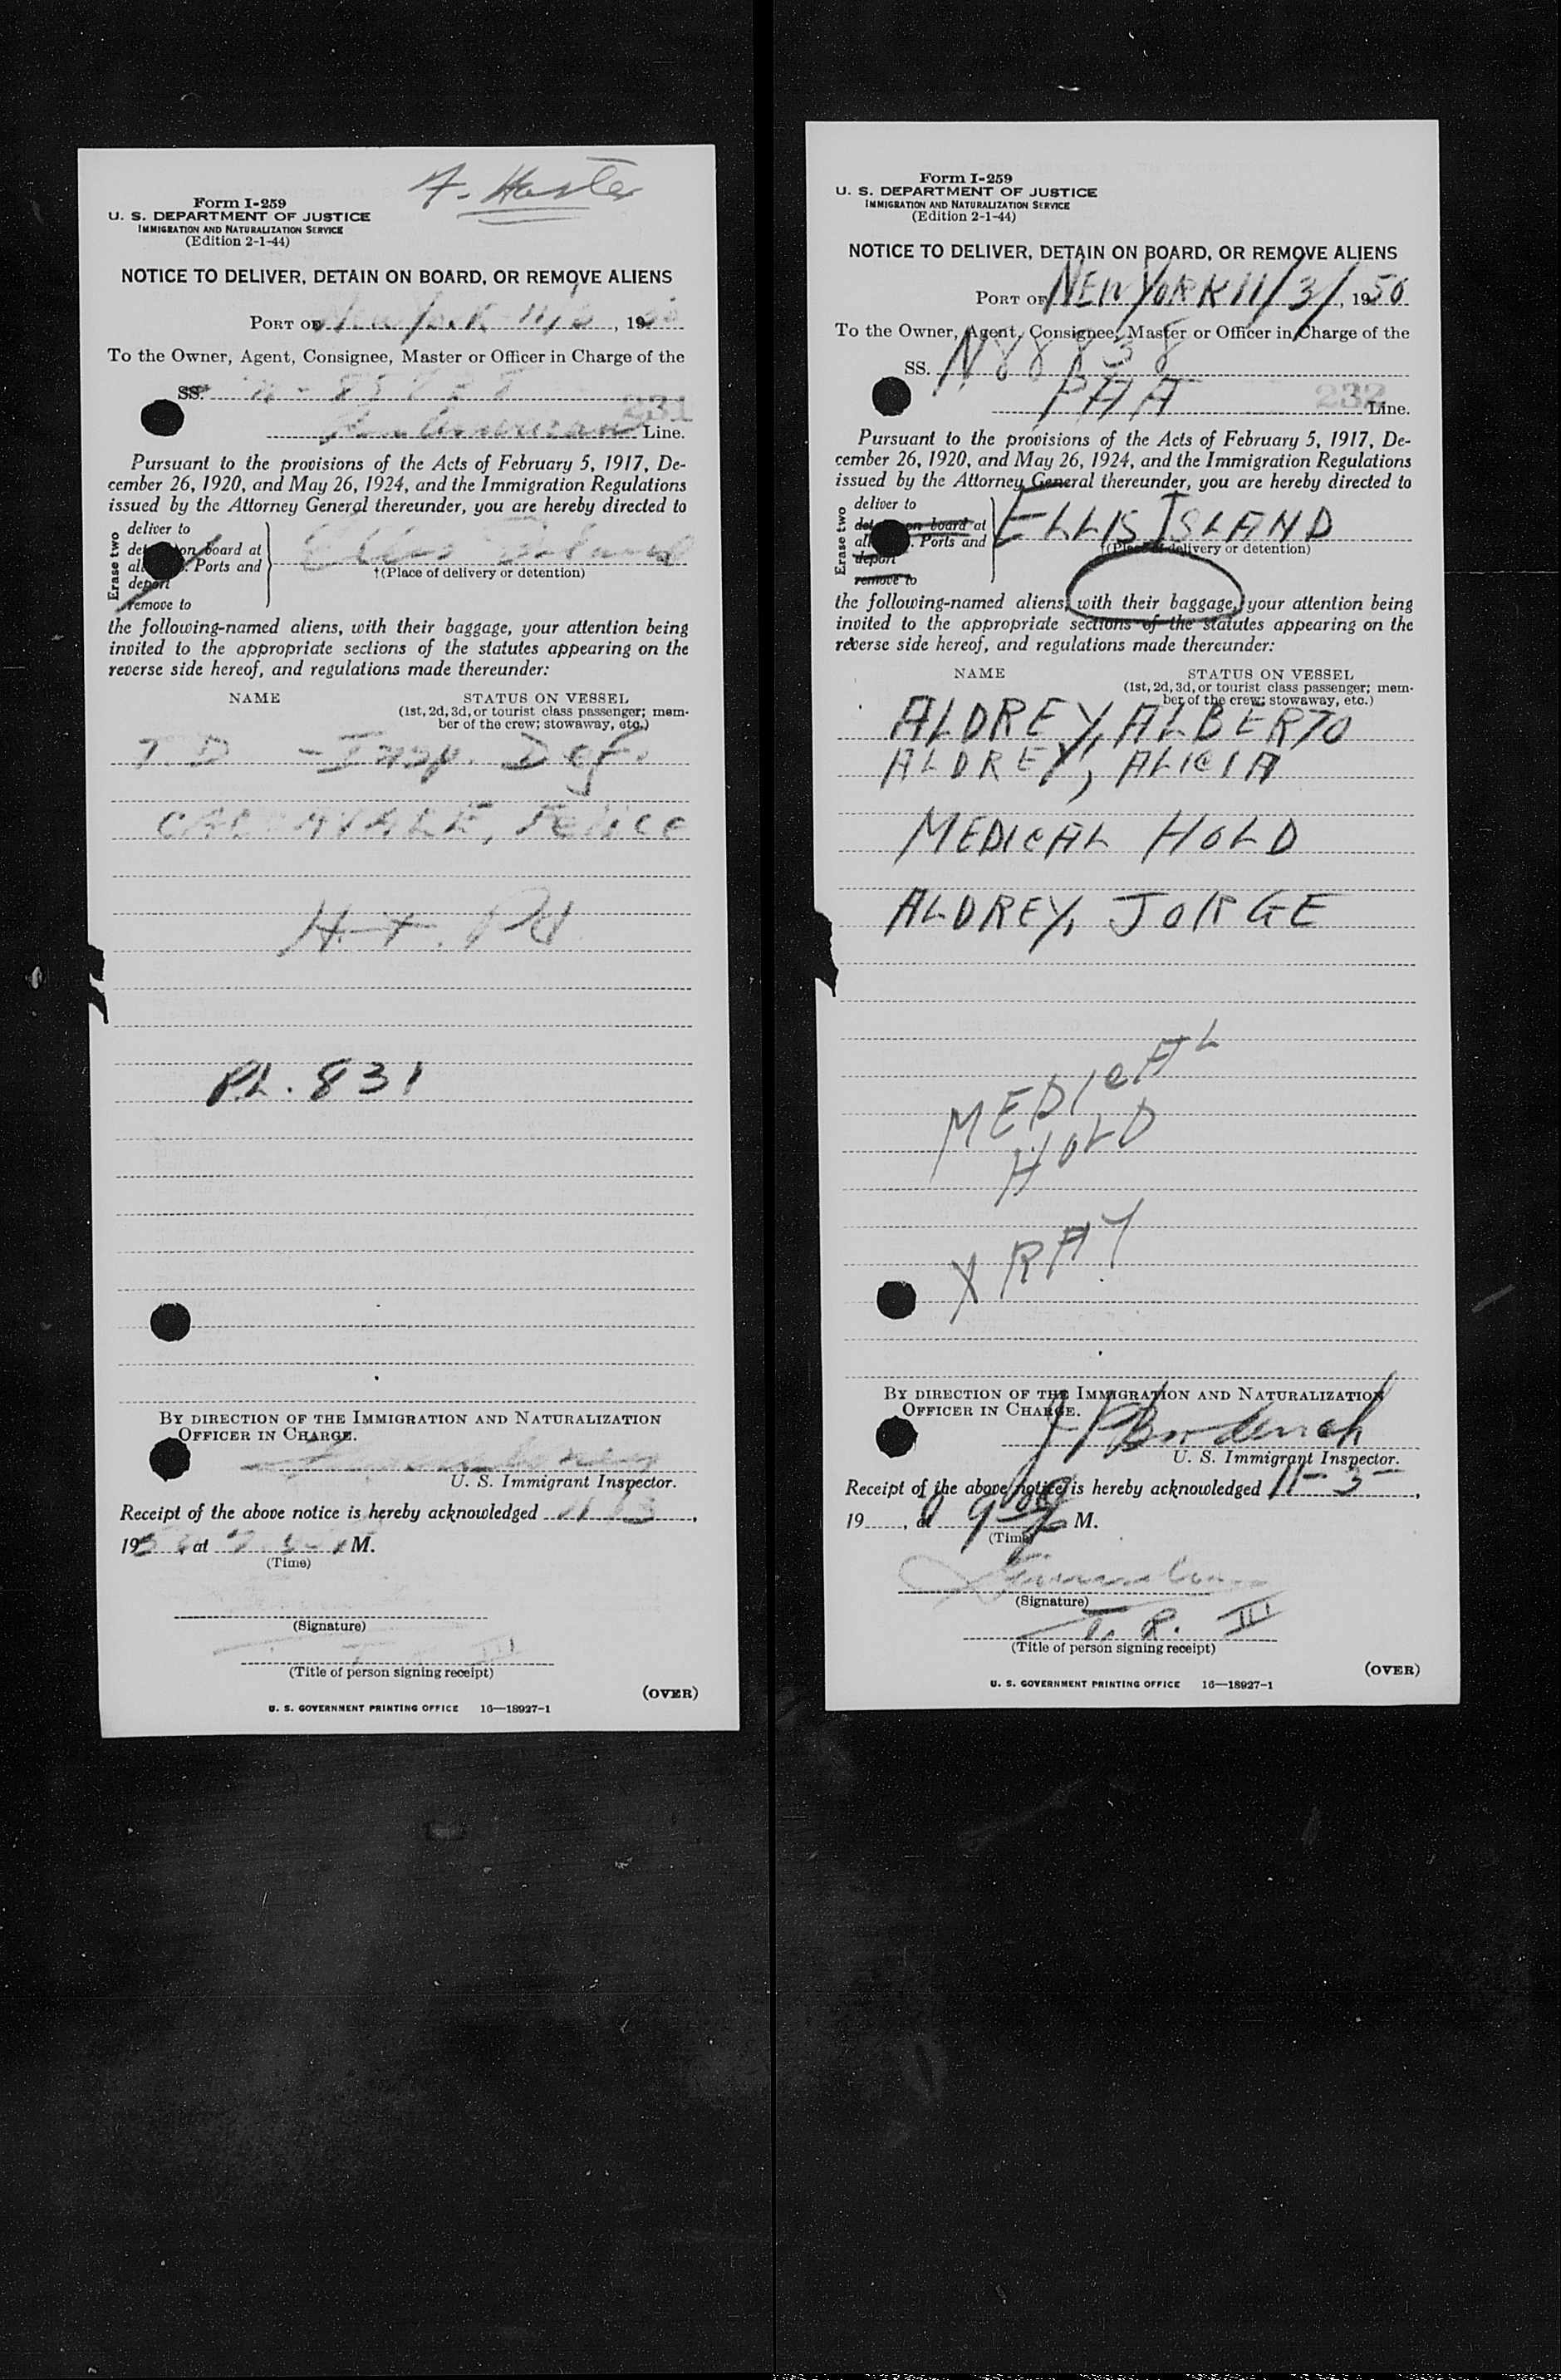 Form I-259
U. S. DEPARTMENT OF JUSTICE
IMMIGRATION AND NATURALIZATION SERVICE
(Edition 2-1-44)
NOTICE TO DELIVER, DETAIN ON BOARD, OR REMOVE ALIENS
PORT OF New York 11/3, 1950
To the Owner, Agent, Consignee, Master or Officer in Charge of the
SS.
231
American Line.
Pursuant to the provisions of the Acts of February 5, 1917, De-
cember 26, 1920, and May 26, 1924, and the Immigration Regulations
issued by the Attorney General thereunder, you are hereby directed to
Erase two
deliver to
on board at
Ports and
deport
remove to
Ellis Island
†(Place of delivery or detention)
the following-named aliens, with their baggage, your attention being
invited to the appropriate sections of the statutes appearing on the
reverse side hereof, and regulations made thereunder:
NAME
STATUS ON VESSEL
(1st, 2d, 3d, or tourist class passenger; mem-
ber of the crew; stowaway, etc.)
T. D. - Insp. Def.
Felice
P.L. 831
BY DIRECTION OF THE IMMIGRATION AND NATURALIZATION
OFFICER IN CHARGE.
U. S. Immigrant Inspector.
Receipt of the above notice is hereby acknowledged 11/3,
1950, at M.
(Time)
(Signature)
III
(Title of person signing receipt)
(OVER)
U. S. GOVERNMENT PRINTING OFFICE 16—18927-1
Form I-259
U. S. DEPARTMENT OF JUSTICE
IMMIGRATION AND NATURALIZATION SERVICE
(Edition 2-1-44)
NOTICE TO DELIVER, DETAIN ON BOARD, OR REMOVE ALIENS
PORT OF NEW YORK 11/3/, 1950
To the Owner, Agent, Consignee, Master or Officer in Charge of the
SS. N 88838
232
PAA Line.
Pursuant to the provisions of the Acts of February 5, 1917, De-
cember 26, 1920, and May 26, 1924, and the Immigration Regulations
issued by the Attorney General thereunder, you are hereby directed to
Erase two
deliver to
on board at
Ports and
deport
remove to
ELLIS ISLAND
†(Place of delivery or detention)
the following-named aliens, with their baggage, your attention being
invited to the appropriate sections of the statutes appearing on the
reverse side hereof, and regulations made thereunder:
NAME
STATUS ON VESSEL
(1st, 2d, 3d, or tourist class passenger; mem-
ber of the crew; stowaway, etc.)
ALDREY, ALBERTO
ALDREY, ALICIA
MEDICAL HOLD
ALDREY, JORGE
MEDICAL
HOLD
X RAY
BY DIRECTION OF THE IMMIGRATION AND NATURALIZATION
OFFICER IN CHARGE.
U. S. Immigrant Inspector.
Receipt of the above notice is hereby acknowledged 11-3-,
19, at 9 00 M.
(Time)
(Signature)
T. R. III
(Title of person signing receipt)
(OVER)
U. S. GOVERNMENT PRINTING OFFICE 16—18927-1